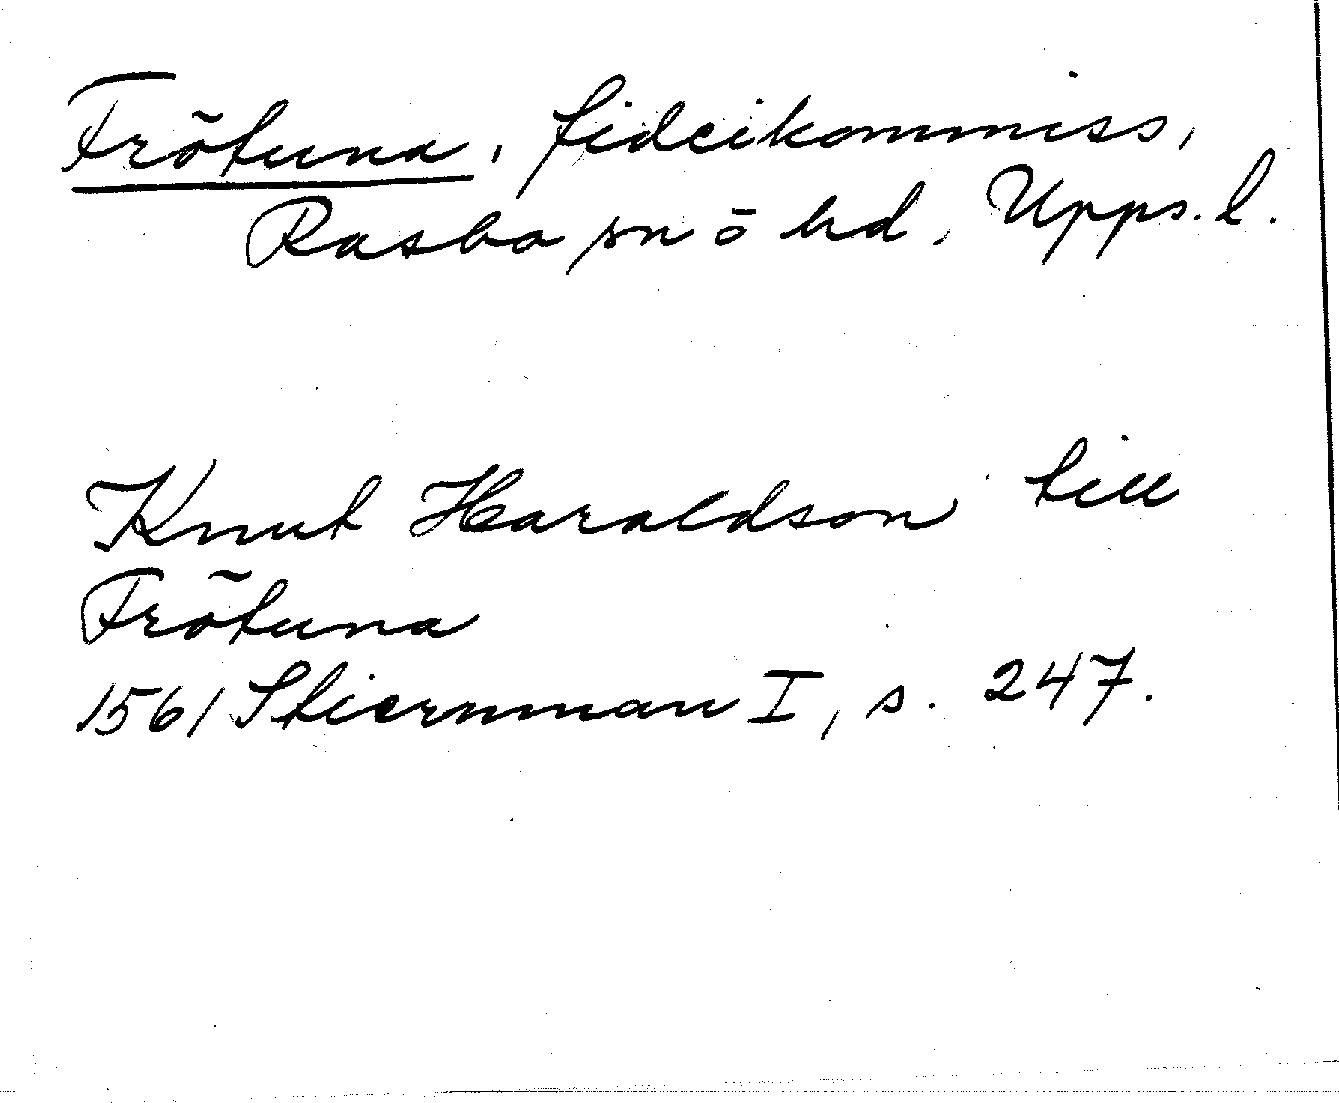 Frötuna, fideikommiss,
Rasbo sn ō hd, Upps. l.
Knut Haraldson till
Frötuna
1561 Stiernman I, s. 247.